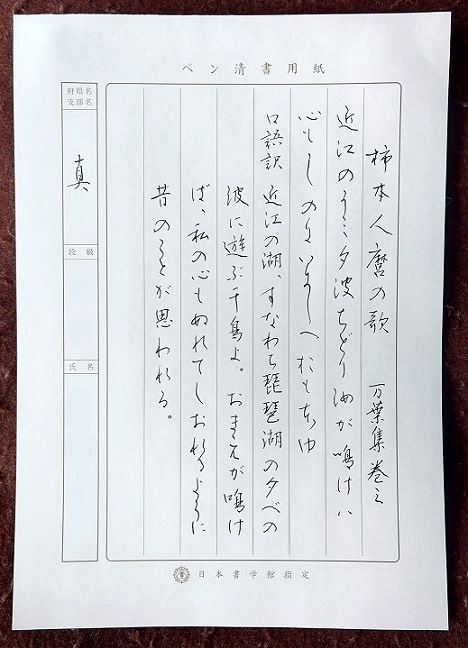 ペン清書用紙
柿本人麿の歌 万葉集巻三
近江のうミ夕波ちどり汝が鳴けハ
心もしのにいにしへおもほゆ
口語訳 近江の湖、すなわち琵琶湖の夕べの
波に遊ぶ千鳥よ。おまえが鳴け
ば、私の心もぬれてしおれるように
昔のことが思われる。
府県名
支部名
真
段級
氏名
日本書学館指定